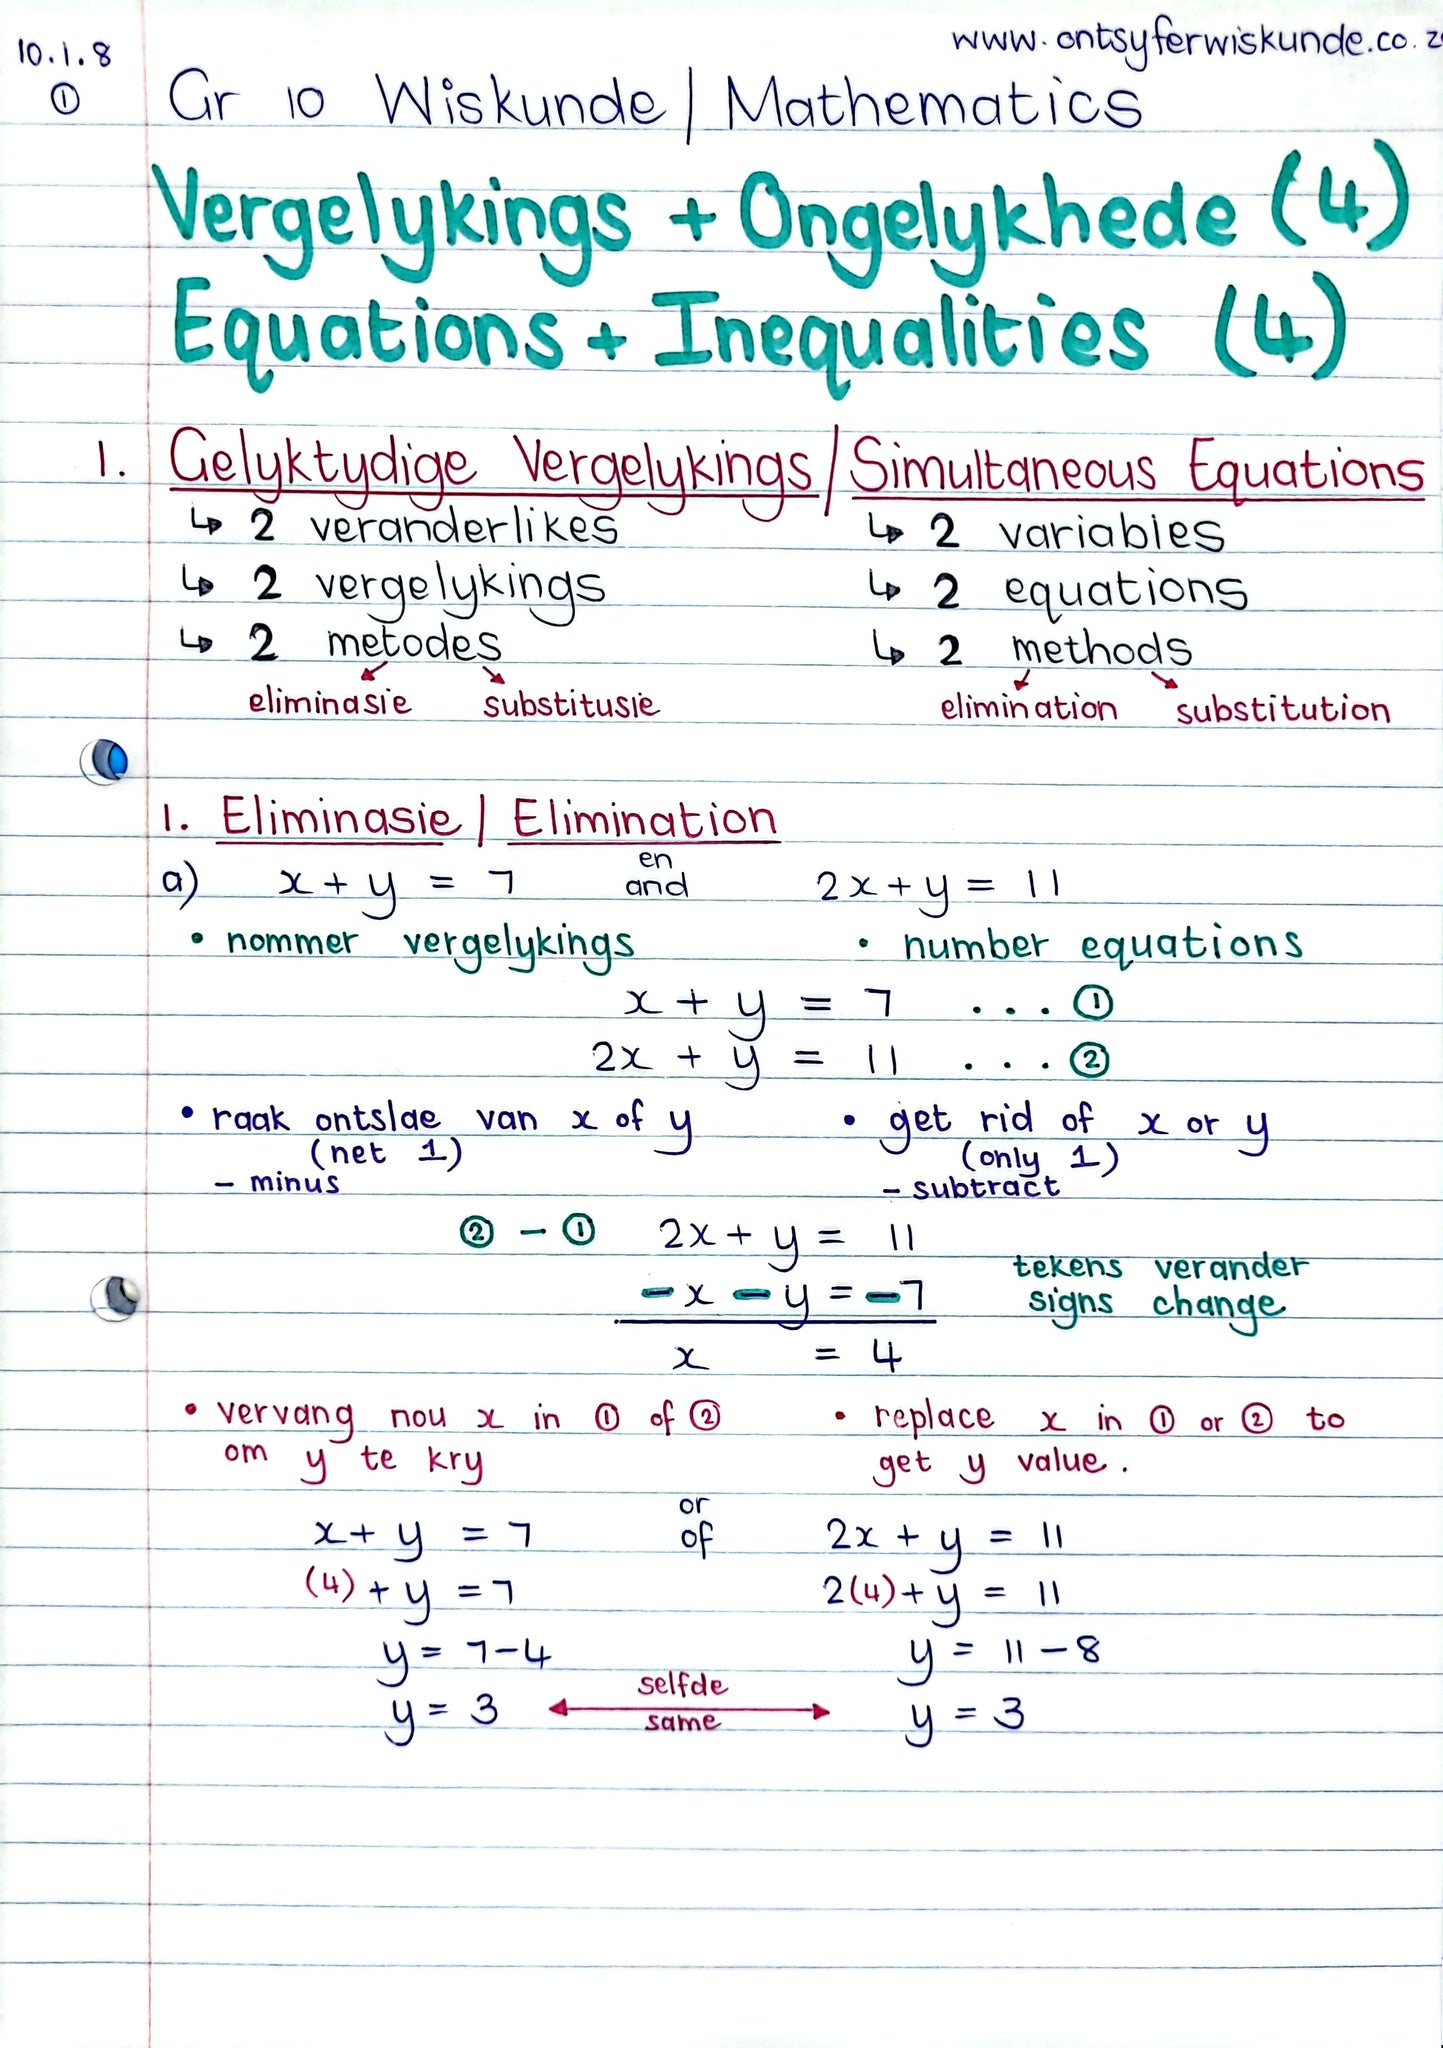 10.1.8
www.ontsyferwiskunde.co.z
①
Gr 10 Wiskunde / Mathematics
Vergelykings + Ongelykhede (4)
Equations + Inequalities (4)
1. Gelyktydige Vergelykings / Simultaneous Equations
↳ 2 veranderlikes ↳ 2 variables
↳ 2 vergelykings ↳ 2 equations
↳ 2 metodes ↳ 2 methods
eliminasie substitusie elimination substitution
1. Eliminasie / Elimination
a) x + y = 7 en and 2x + y = 11
• nommer vergelykings • number equations
x + y = 7 ... ①
2x + y = 11 ... ②
• raak ontslae van x of y • get rid of x or y
(net 1) (only 1)
- minus - subtract
② - ① 2x + y = 11
- x - y = - 7 tekens verander signs change
x = 4
• vervang nou x in ① of ② • replace x in ① or ② to
om y te kry get y value.
x + y = 7 or of 2x + y = 11
(4) + y = 7 2(4) + y = 11
y = 7 - 4 y = 11 - 8
y = 3 selfde same y = 3